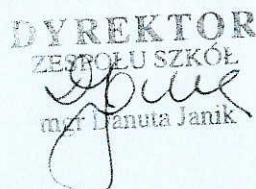 DYREKTOR
ZESPOŁU SZKÓŁ
mgr Danuta Janik